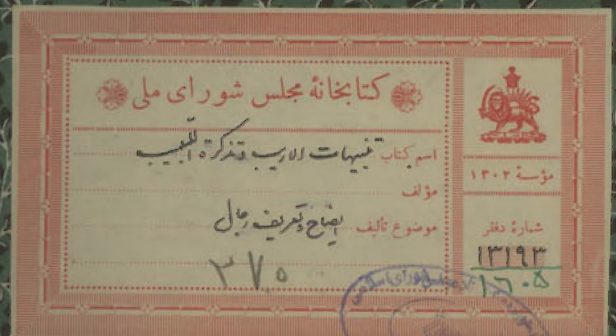 کتابخانهٔ مجلس شورای ملی
اسم کتاب تنبیهات الاریب و تذکرة اللبیب
مؤلف
موضوع تألیف ایضاح و تعریف رجال
۳۷۵
مؤسسهٔ ۱۳۰۲
شمارهٔ دفتر
۱۳۱۹۳
۱۶۰۵